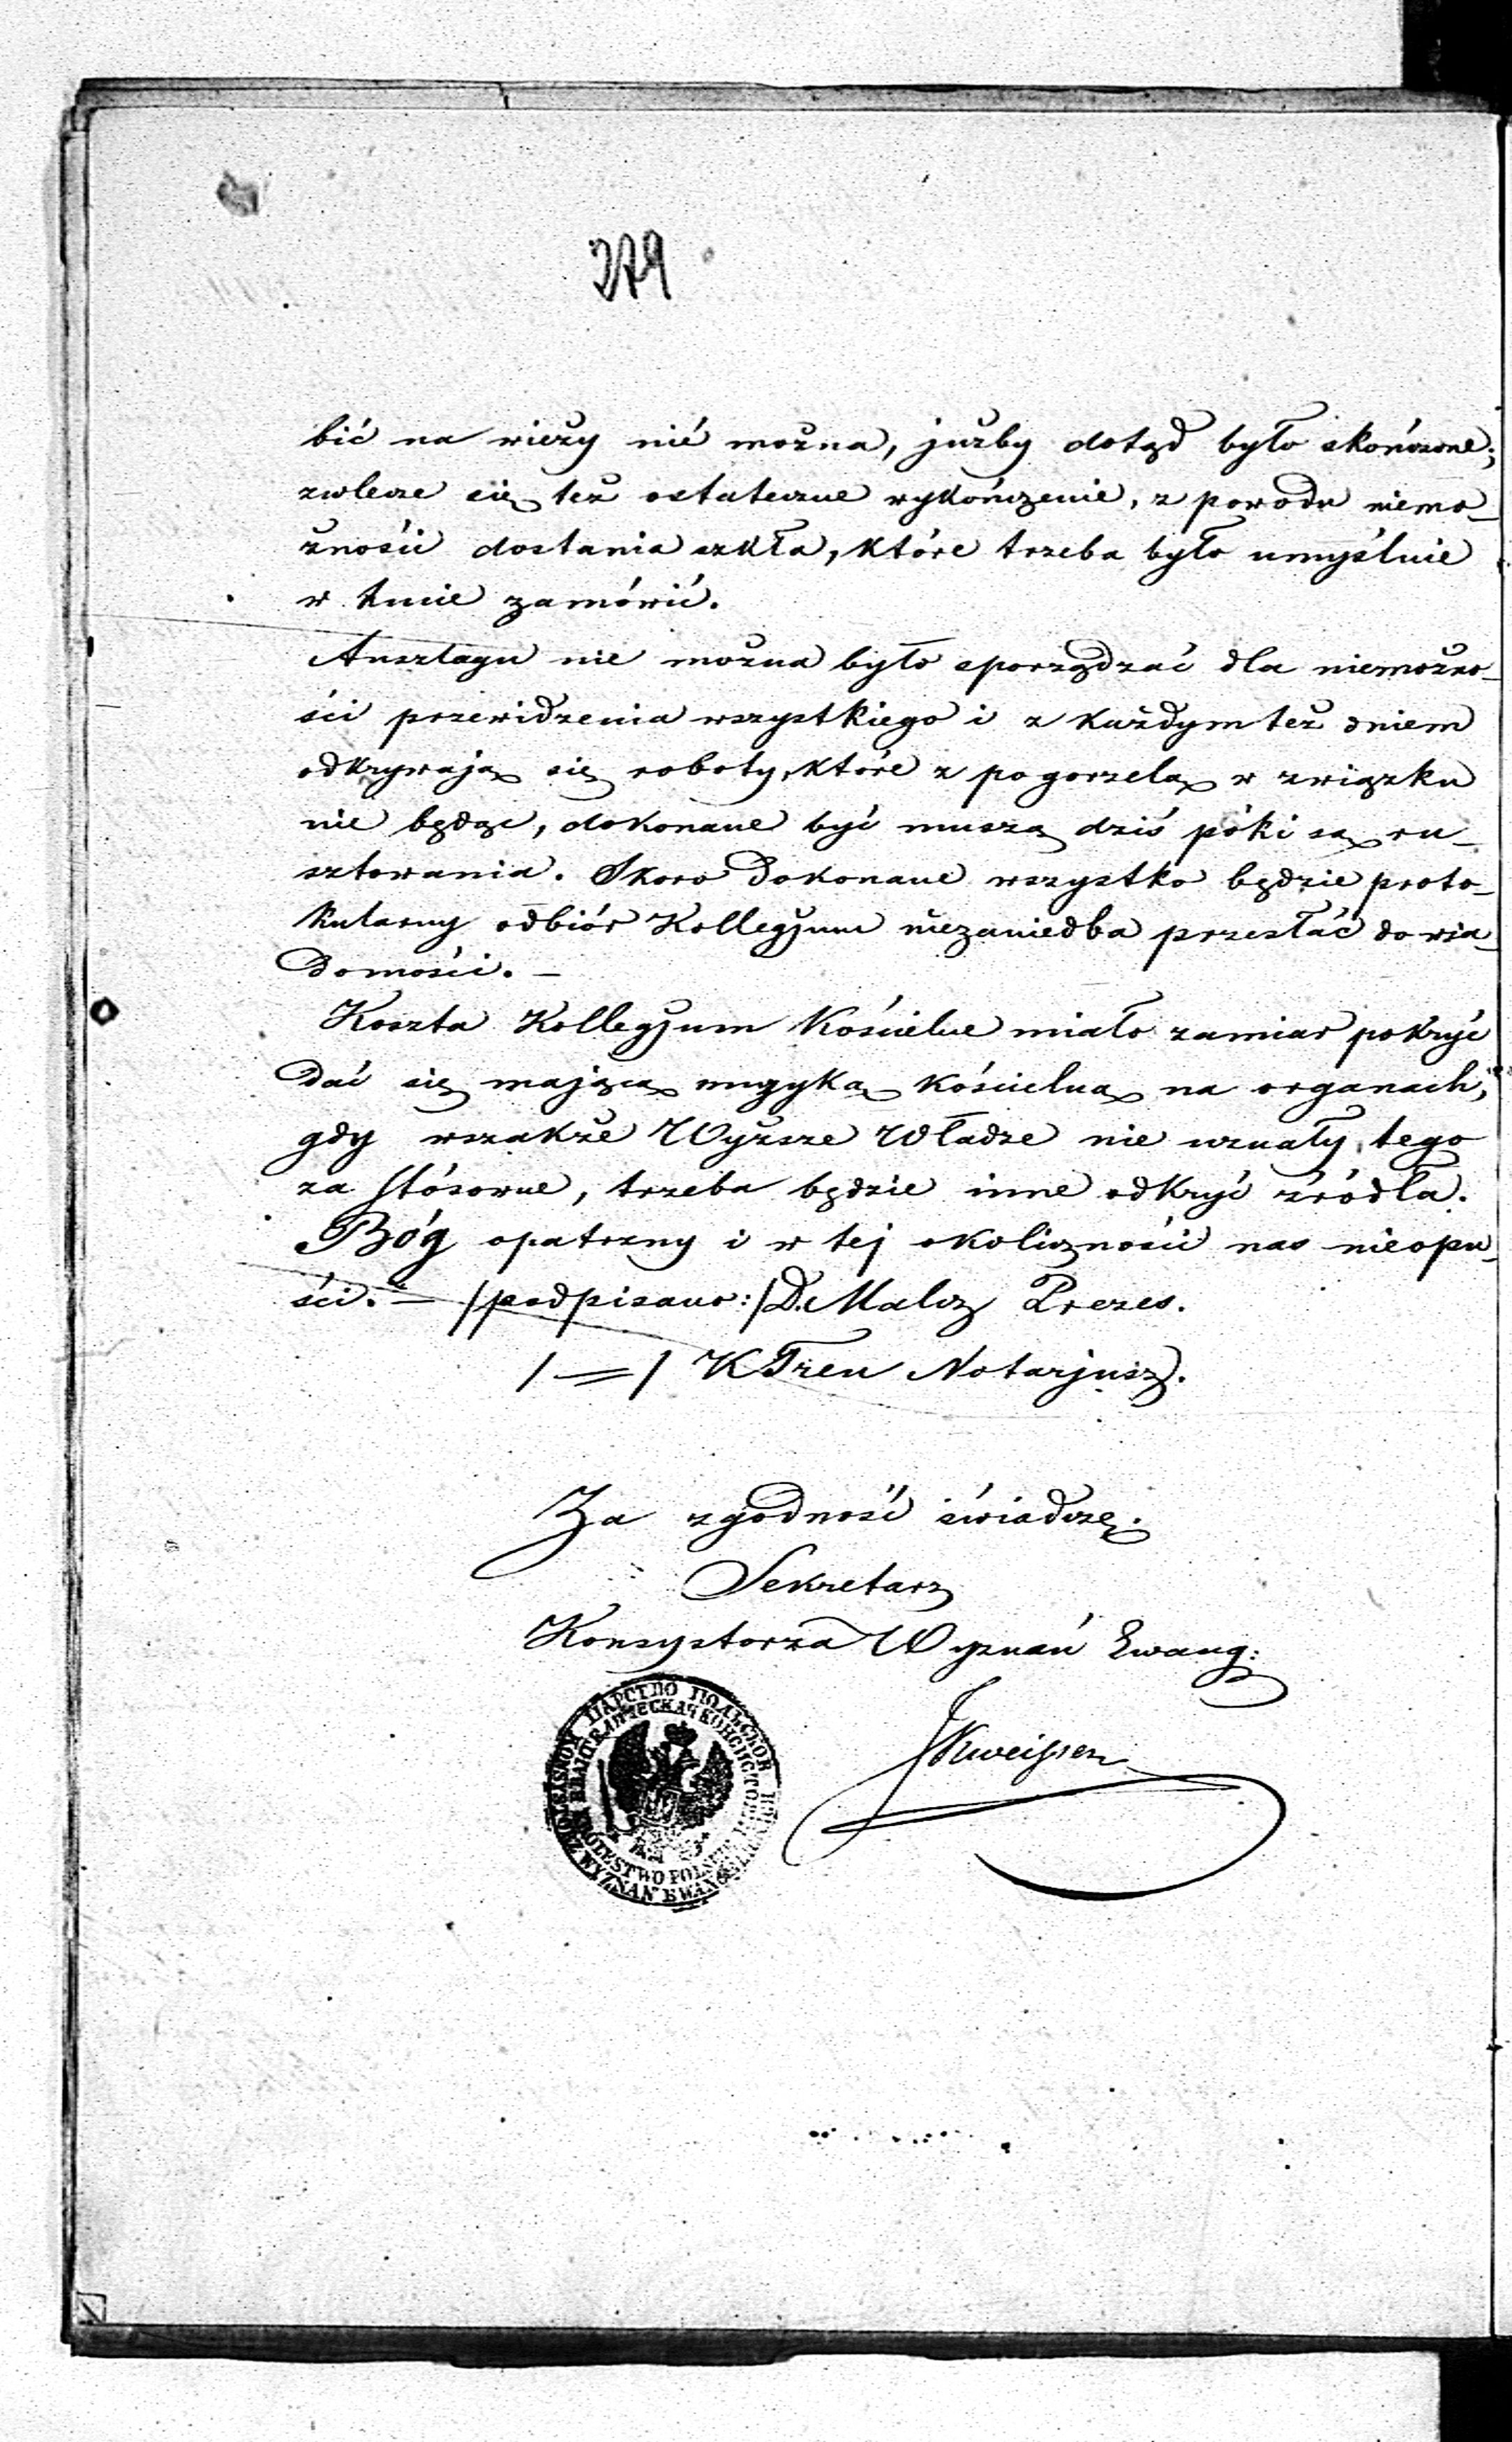 279
bić na wieży nié można, jużby dotąd było skończone;
zwlecze się też ostateczne wykończenie, z powodu niemo-
żności dostania szkła, które trzeba było umyślnie
w hucie zamówić.
Anszlagu nie można było sporządzać dla niemożno-
ści przewidzenia wszystkiego i z każdym też dniem
odkrywają się roboty, które z pogorzelą w związku
nie będąc, dokonane być muszą dziś póki są ru-
sztowania. Skoro dokonane wszystko będzie proto-
kularny odbiór Kollegjum niezaniedba przesłać do wia-
domości. —
Koszta Kollegjum Kościelne miało zamiar pokryć
dać się mającą muzyką kościelną na organach;
gdy wszakże Wyższe Władze nie uznały tego
za stósowne, trzeba będzie inne odkryć źródła.
Bóg opatrzny i w tej okoliczności nas nieopu-
ści. — /podpisano:/ D. Malcz Prezes.
/ = / K Tren Notarjusz.
Za zgodność świadczę.
Sekretarz
Konsystorza Wyznań Ewang:
ЦАРСТВО ПОЛЬСКОЕ
ЕВАНГЕЛИЧЕСКАЯ КОНСИСТОРІЯ
KRÓLESTWO POLSKIE
KONSYSTORZ WYZNAŃ EWANGELICKICH